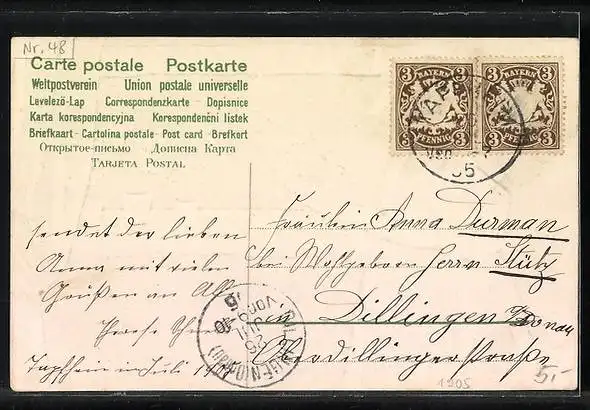 Nr. 48
Carte postale Postkarte
Weltpostverein Union postale universelle
Levelező-Lap Correspondenzkarte Dopisnice
Karta korespondencyjna Korespondenční listek
Briefkaart - Cartolina postale - Post card - Brefkort
Открытое-письмо Дописна Карта
TARJETA POSTAL
3 BAYERN 3
3 PFENNIG 3
3 BAYERN 3
3 PFENNIG 3
05
sendet der lieben
Anna mit vielen
Grüßen an Alle
Tapfheim im Juli
Fräulein Anna Durman
bei Wohlgeboren Herrn Stütz
Dillingen a/Donau
Oberdillingerstraße
DILLINGEN (DONAU)
VOR 9-10
JUL
1905
5.-